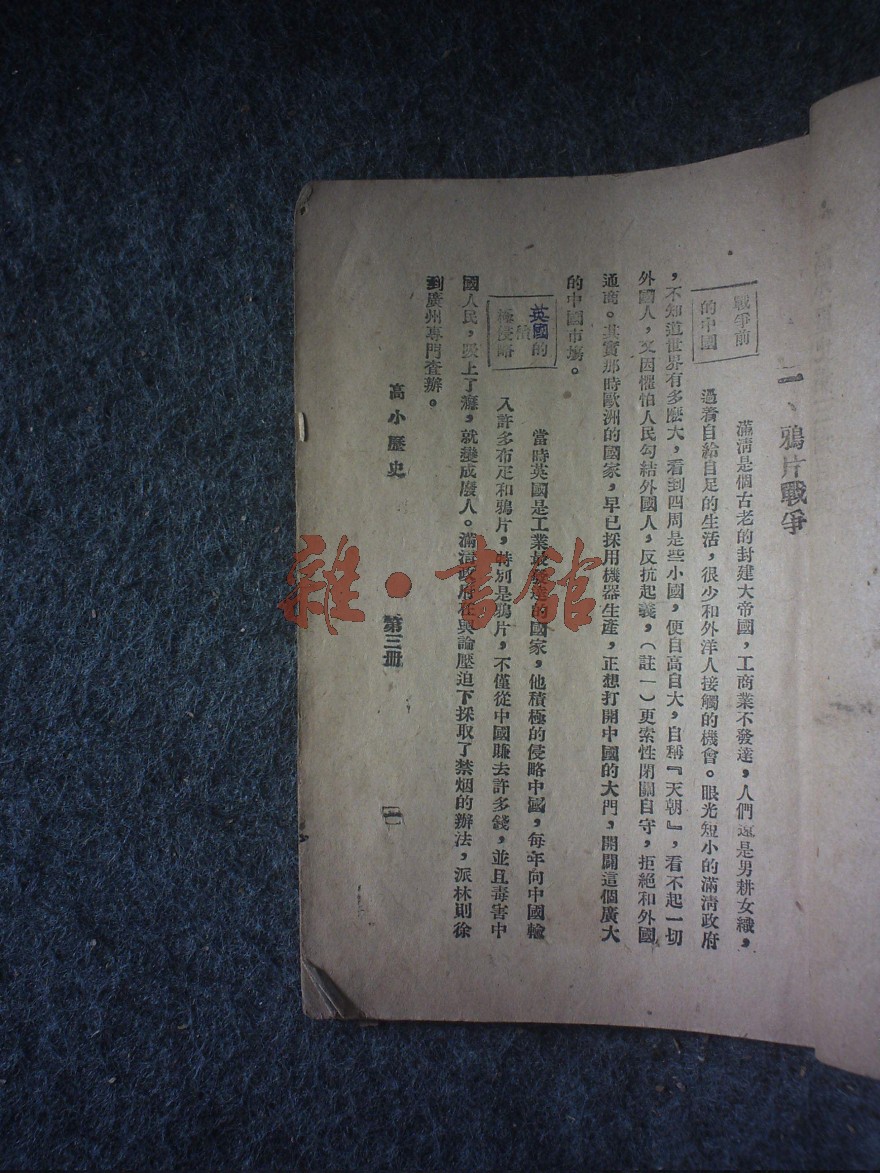 一、鴉片戰爭
戰爭前
的中國
滿清是個古老的封建大帝國，工商業不發達，人們還是男耕女織，
過着自給自足的生活，很少和外洋人接觸的機會。眼光短小的滿清政府
，不知道世界有多麼大，看到四周是些小國，便自高自大，自稱『天朝』，看不起一切
外國人，又因懼怕人民勾結外國人，反抗起義，（註一）更索性閉關自守，拒絕和外國
通商。其實那時歐洲的國家，早已採用機器生產，正想打開中國的大門，開闢這個廣大
的中國市場。
英國的積
極侵略
當時英國是工業最發達的國家，他積極的侵略中國，每年向中國輸
入許多布疋和鴉片，特別是鴉片，不僅從中國賺去許多錢，並且毒害中
國人民，吸上了癮，就變成廢人。滿清政府在輿論壓迫下採取了禁烟的辦法，派林則徐
到廣州專門查辦。
高小歷史 第三冊 一
雜·書館